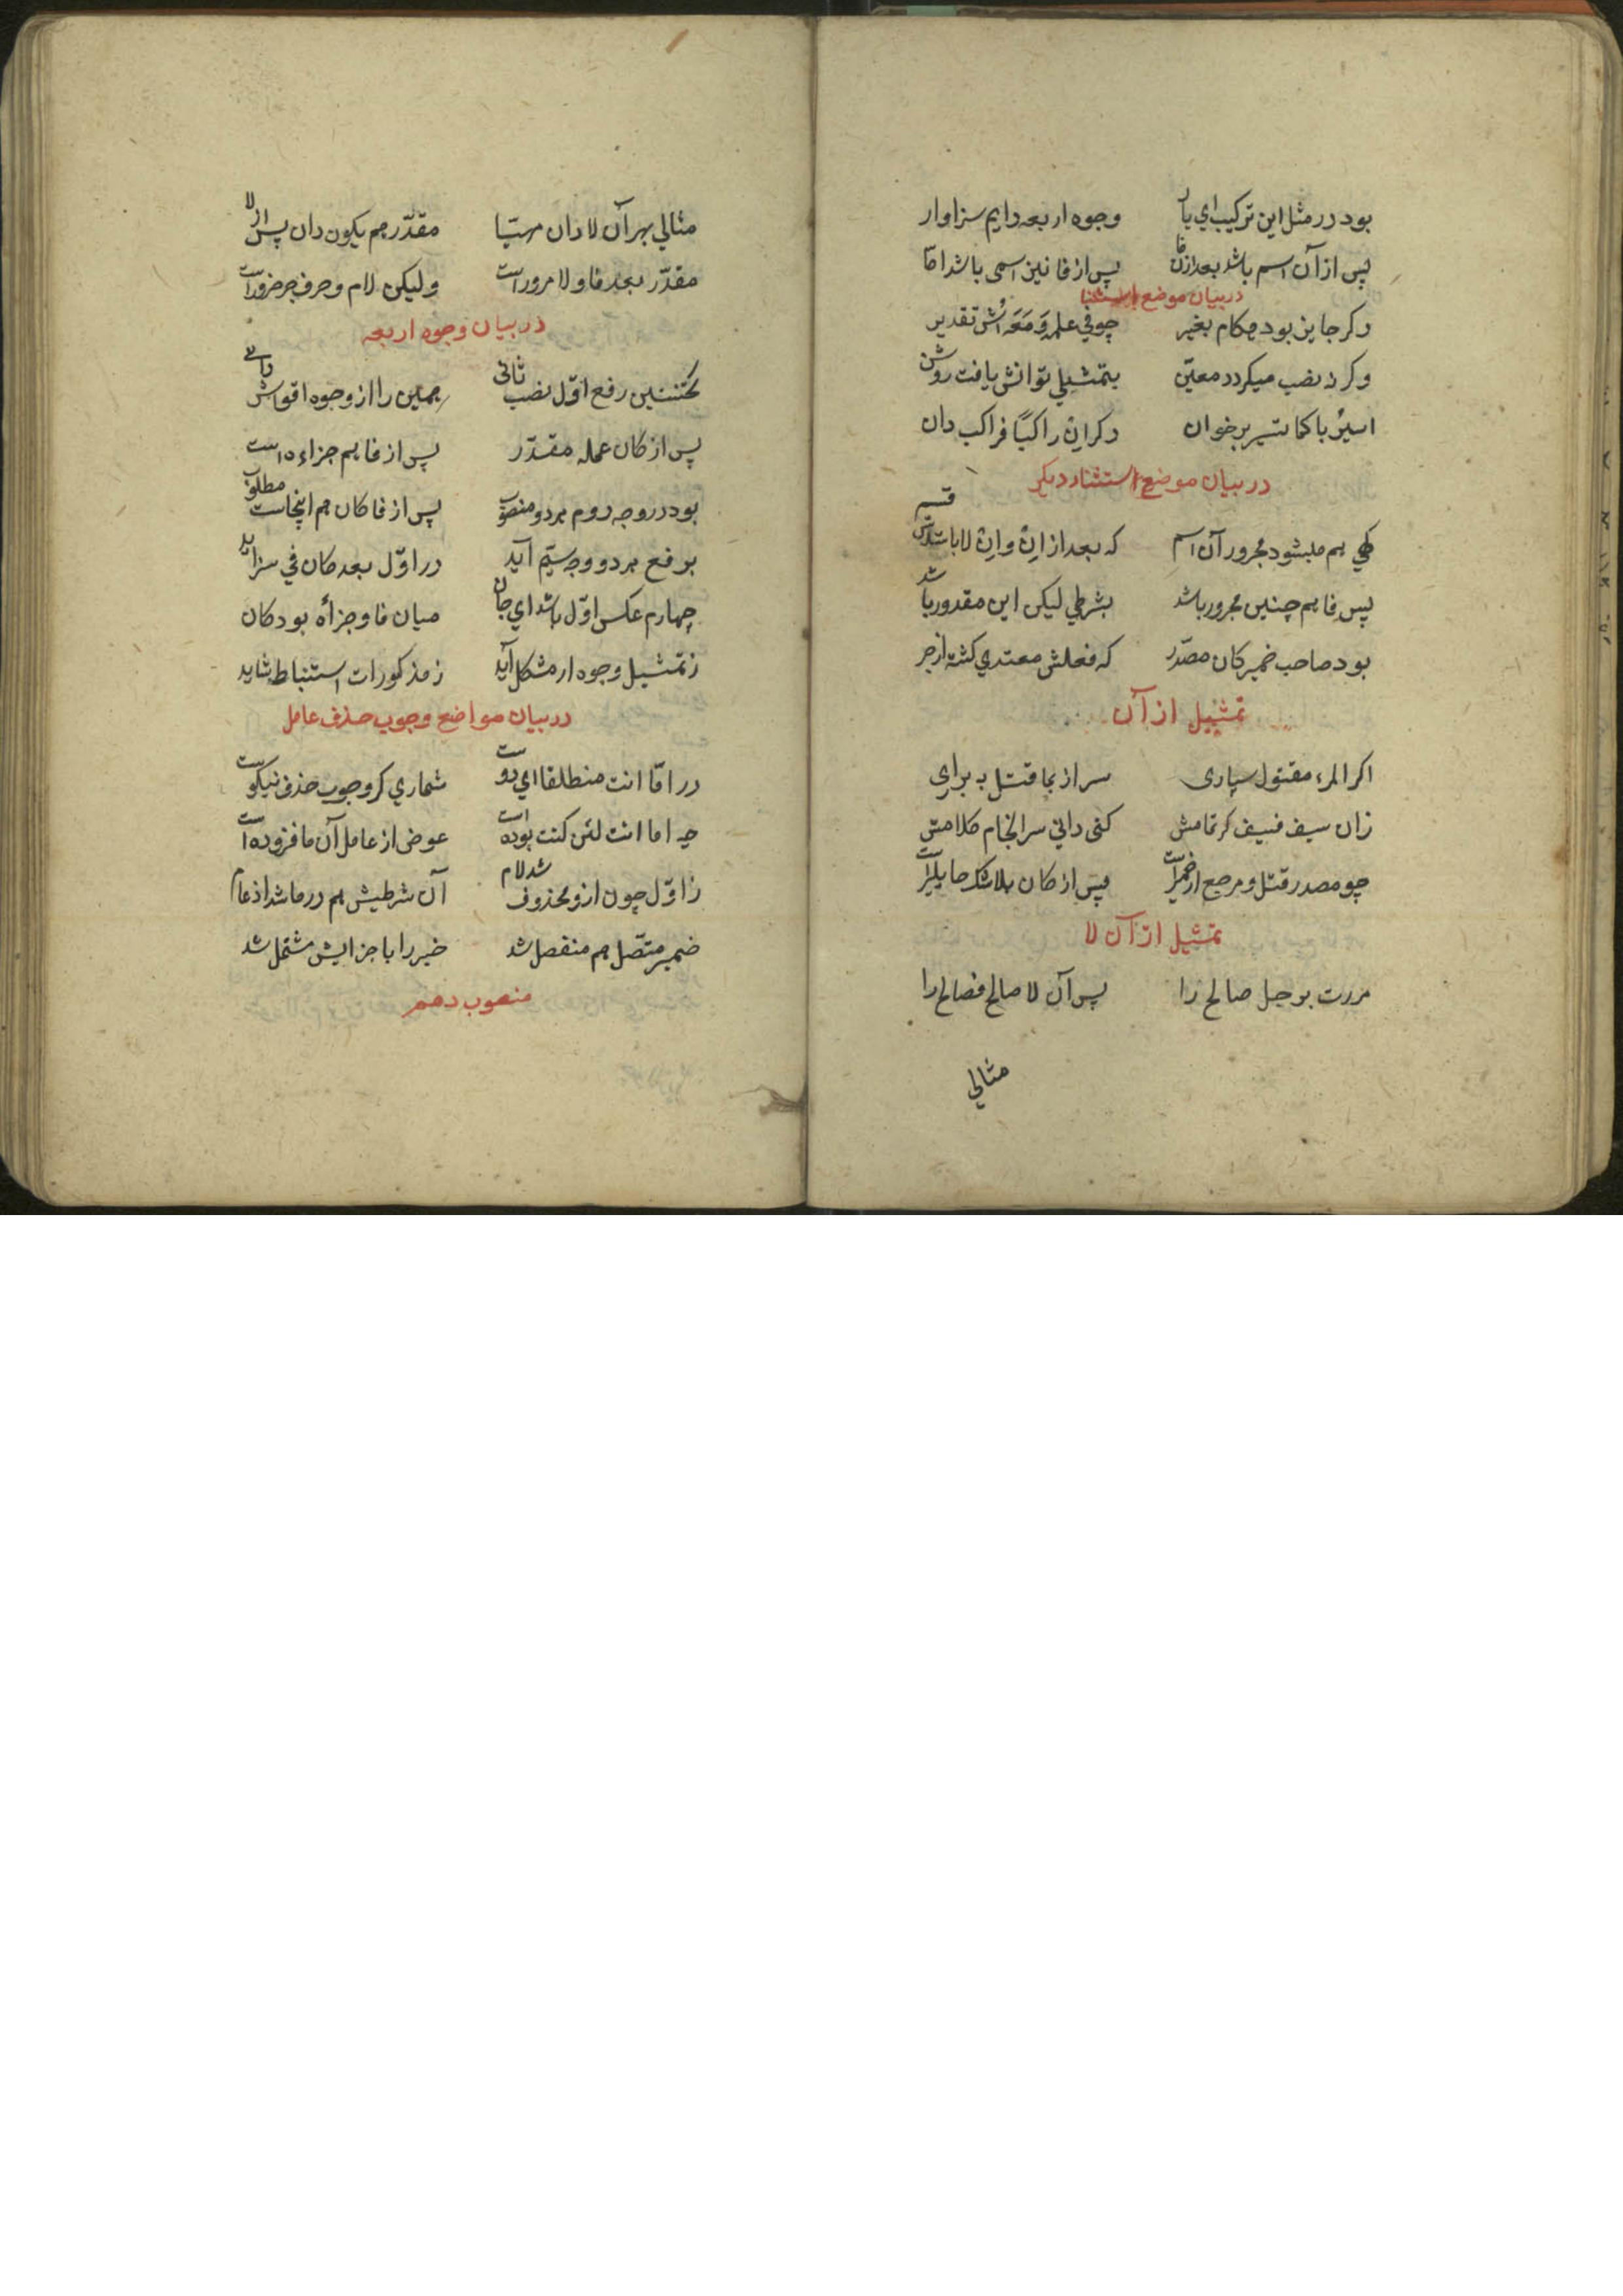 بود در مثل این ترکیب ای یار وجوه اربعه دایم سزاوار
پس از آن اسم باشد بعد ازان فا پس از فا نیز اسمی باشد اما
در بیان موضع استثنا
وکر جایز بود مکام بغیر چو فی علمه و معه اش تقدیر
وکر نه نصب میکردد معیّن بتمثیلی توانش یافت روشن
اسیرُ با کما تسیر برخوان دکر ان راکبًا فراکب دان
در بیان موضع استثناء دیکر
کهی هم میشود مجرور آن اسم که بعد از اِنْ و اِنْ لا باشدش قسم
پس فا هم چنین مجرور باشد بشرطی لیکن این مقدور باشد
بود صاحب ضمیر کان مصدّر که فعلش معتدی کشته از جر
تمثیل از آن
اکر المرء مقتول سپاری سر از بما قتل به برای
زان سیف فسیف کر تمامش کنی دانی سرانجام کلامش
چو مصدر قتل و مرجع از ضمیر است پس از کان بلا شک
تمثیل از آن لا
مررت برجل صالح را پس آن لا صالح فصالح را
مثالی
مثالی بهر آن لا دان مهیّا مقدّر هم یکون دان پس از لا
مقدّر بعد فا و لا مرور است ولیکن لام و حرف جر ضرور است
در بیان وجوه اربعه
نخستین رفع اوّل نصب ثانی همین را از وجوه اقواش دانی
پس از کان عمله مقدّر پس از فا هم جزاءه است
بود در وجه دوم هر دو منصوب پس از فا کان هم اینجاست مطلوب
برفع هر دو وجه سیّم آید در اوّل بعد کان فی سزاید
چهارم عکس اوّل باشد ای جان میان فا و جزاءه بود کان
ز تمثیل وجوه ار مشکل آید ز مذکورات استنباط شاید
در بیان مواضع وجوب حذف عامل
در امّا انت منطلقا ای دوست شماری کر وجوب حذف نیکوست
چه اما انت لئن کنت بوده است عوض از عامل آن ما فزوده است
ز اوّل چون ازو محذوف شد لام آن شرطیش هم در ما شد ادغام
ضمیر متّصل هم منفصل شد خبر را با جزایش مشتمل شد
منصوب دهم